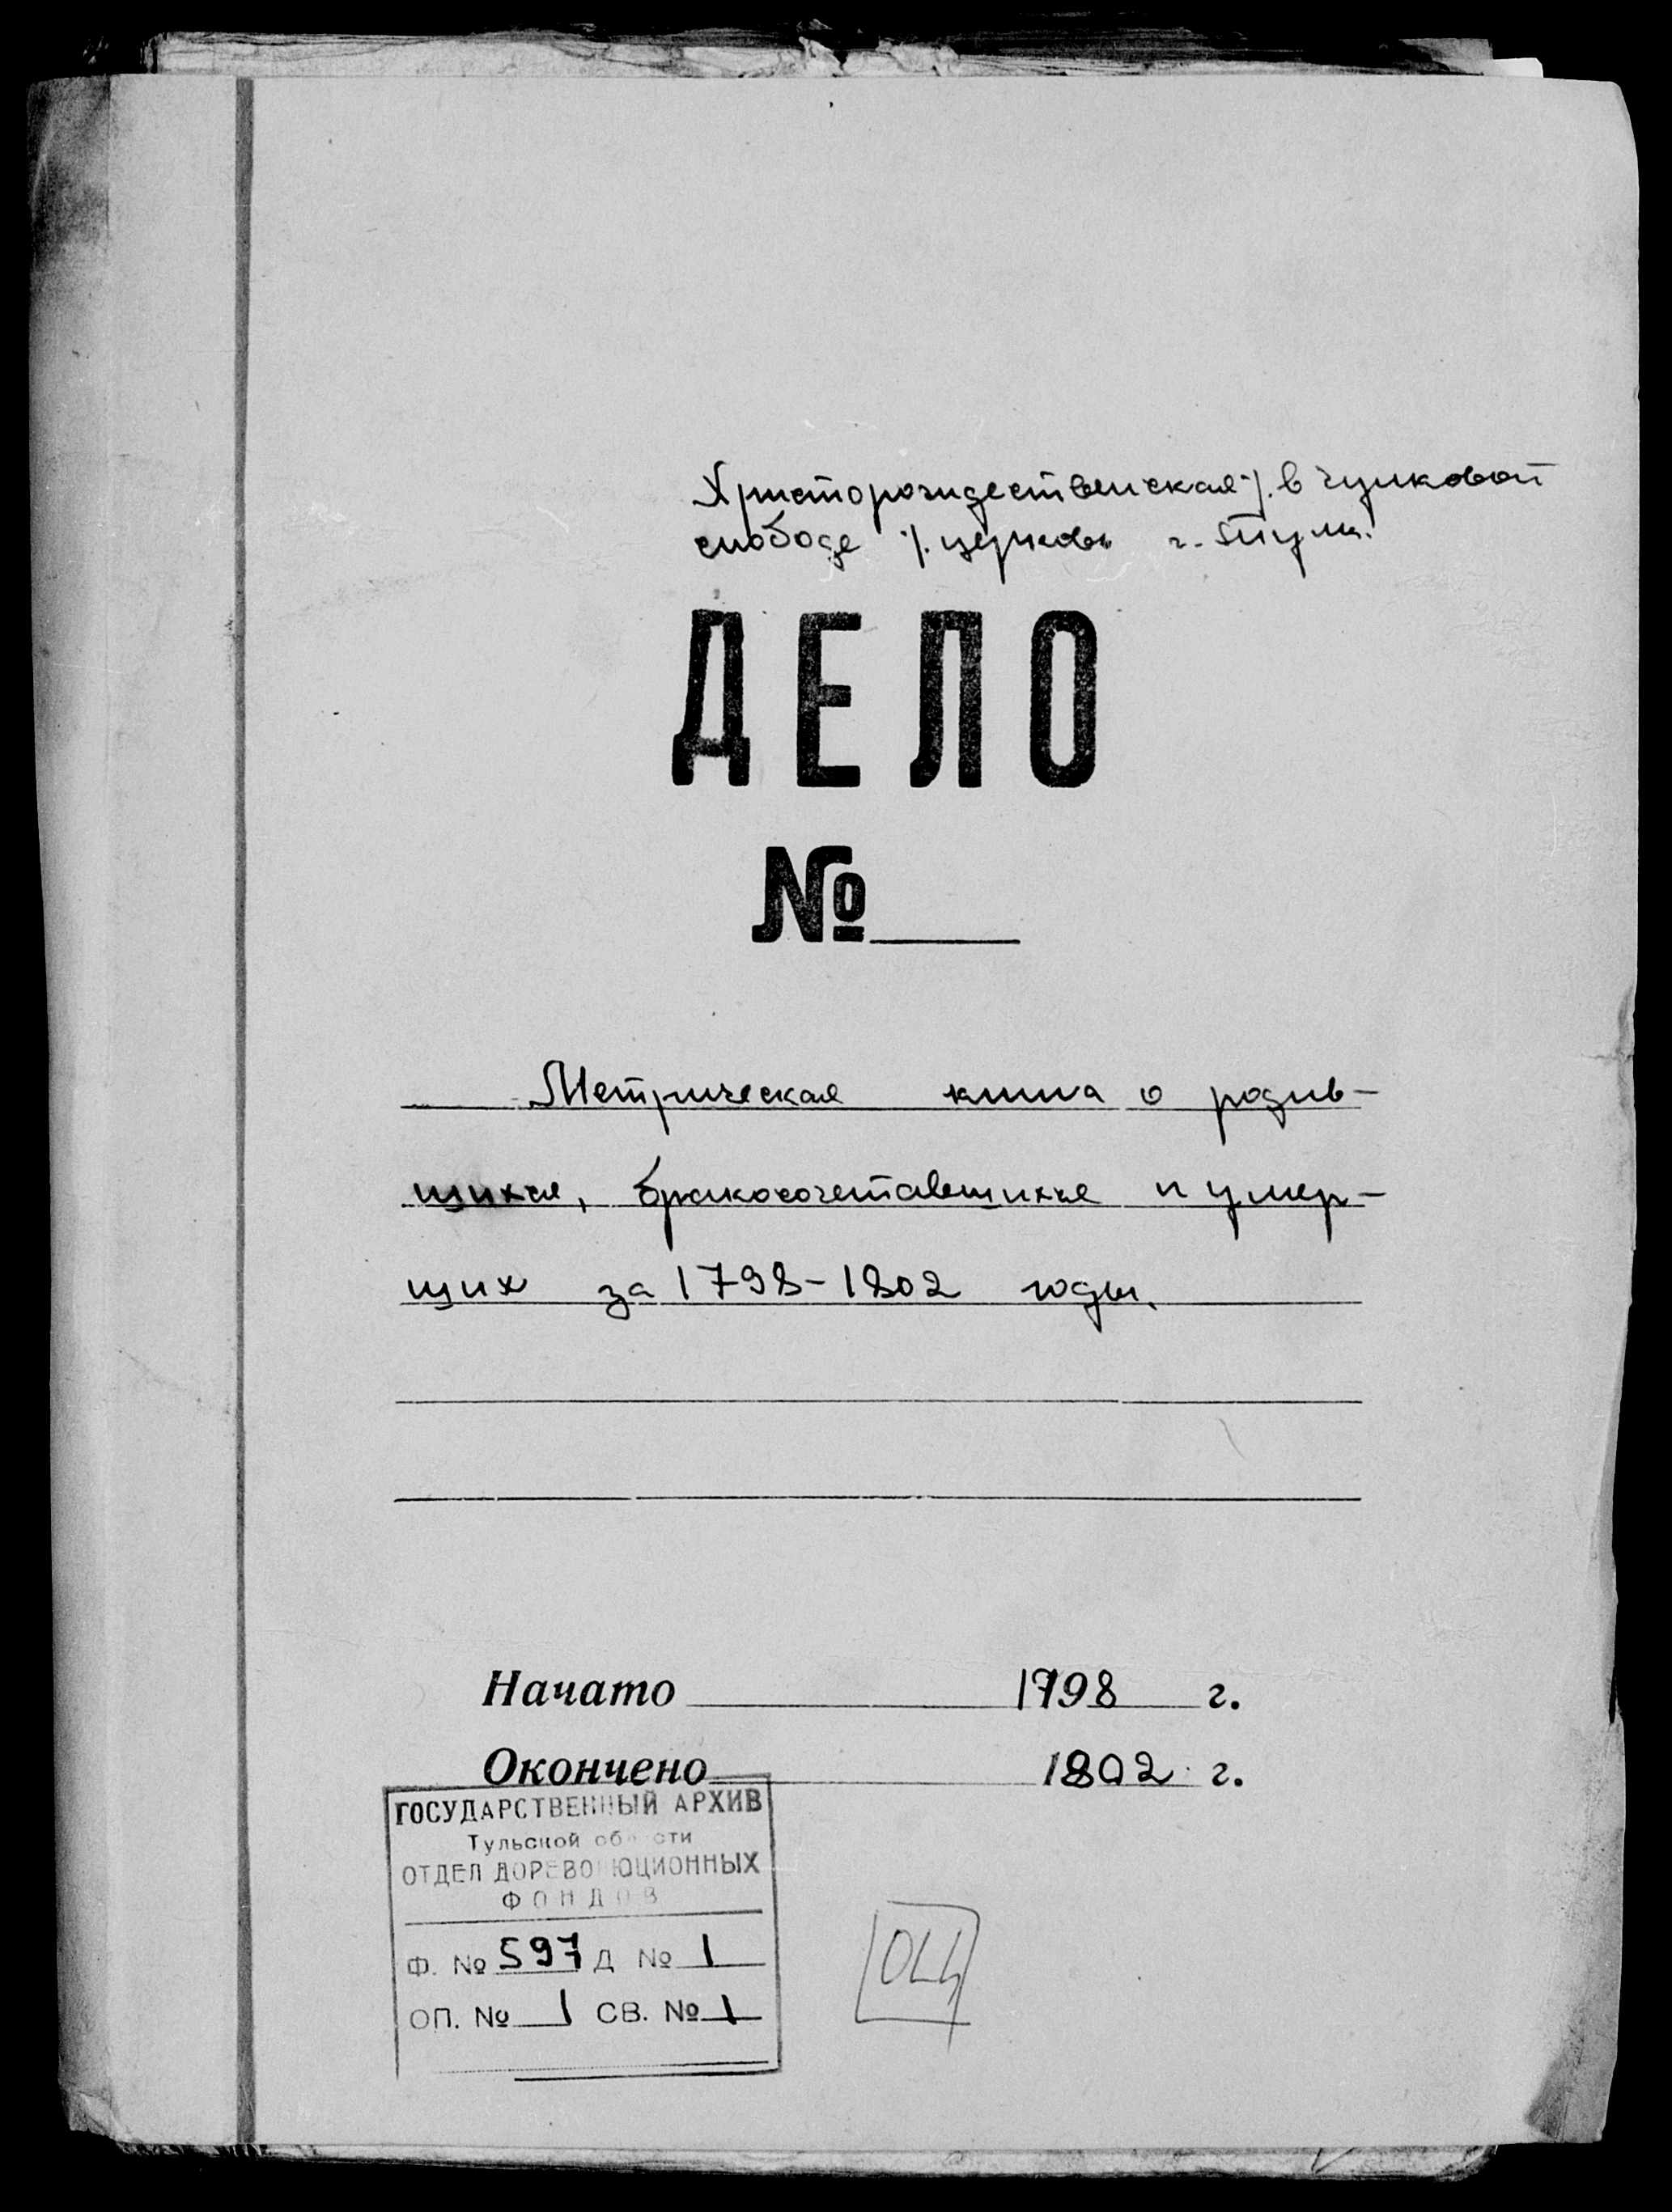 Христорождественская /. в Чулковой
слободе /. церковь г. Тулы.
ДЕЛО
№
Метрическая книга о родив-
шихся, бракосочетавшихся и умер-
ших за 1798-1802 годы.
Начато 1798 г.
Окончено 1802 г.
ГОСУДАРСТВЕННЫЙ АРХИВ
Тульской области
ОТДЕЛ ДОРЕВОЛЮЦИОННЫХ
ФОНДОВ
Ф. № 597 Д № 1
ОП. № 1 СВ. № 1
ОЦ